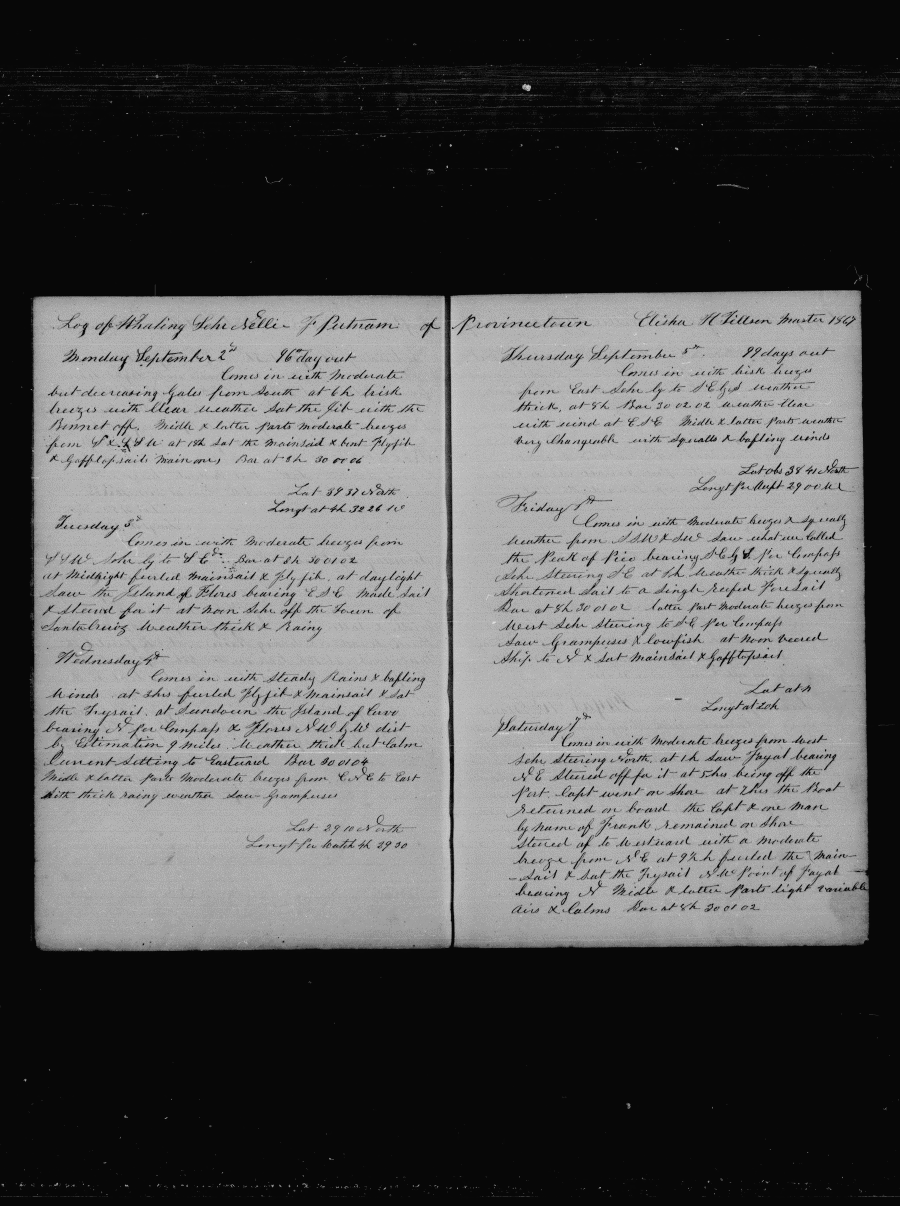 Log of Whaling Schr Nellie F Putnam of Provincetown Elisha H Tillson Master 1867
Monday September 2d 96th day out
Comes in with moderate
but decreasing Gales from South at 6h brisk
breezes with Clear weather Sat the Jib with the
Bonnet off, Midle & latter Parts moderate breezes
from S & S S W at 18h Sat the Mainsail & bent Flyjib
& Gafftopsails Main ones Bar at 8h 30 00 06
Lat 39 37 North
Longt at 4h 32 26 W
Tuesday 3d
Comes in with Moderate breezes from
S S W Schr by to S Ed Bar at 8h 30 01 02
at Midnight furled Mainsail & Flyjib. at daylight
Saw the Island of Flores bearing E S E Made Sail
& steered for it at Noon Schr off the Town of
Santa Cruiz Weather thick & Rainy
Wednesday 4th
Comes in with Steady Rains & bafling
Winds at 3hrs furled Flyjib & Mainsail & Sat
the Trysail. at Sundown the Island of Curvo
bearing N per Compass & Flores N W by W dist
by Estimation 9 miles. Weather thick but Calm
Current Setting to Eastward Bar 30 01 04
Midle & latter Parts Moderate breezes from E N E to East
with thick rainy weather Saw Grampuses
Lat 39 10 North
Longt per Watch 4h 29 30
Thursday September 5th. 99 days out
Comes in with brisk breezes
from East Schr by to S E by S weather
thick, at 8h Bar 30 02 02 Weather Clear
with wind at E S E Midle & latter Parts weather
very Changeable with Squalls & bafling winds
Lat Obs 38 41 North
Longt per 29 00 W
Friday
Comes in with Moderate breezes & Squally
weather from S S W & S W Saw what we Called
the Peak of Pico bearing S E by S Per Compass
Schr Steering S E at 1h Weather thick & Squally
Shortened Sail to a Single Reefed Foresail
Bar at 8h 30 01 02 latter Part Moderate breezes from
West Schr Steering to S E Per Compass
Saw Grampuses & Cowfish at Noon veered
Ship to N & Sat Mainsail & Gafftopsail
Lat at
Longt at 20h
Saturday 7th
Comes in with Moderate breezes from West
Schr Steering North, at 1h Saw Fayal bearing
N E Steered off for it at 5hrs being off the
Port. Capt went on Shore at 7hrs the Boat
returned on board the Capt & one Man
by name of Frank remained on Shore
Steered of to Westward with a moderate
breeze from N E at 9½h furled the Main-
-sail & Sat the Trysail N W Point of Fayal
bearing N Midle & latter Parts light variable
Airs & Calms Bar at 8h 30 01 02